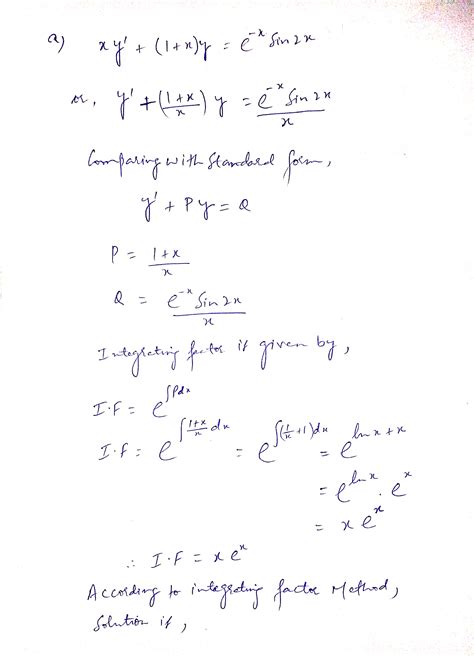 a) xy' + (1+x)y = e^{-x} Sin 2x
or, y' + (1+x/x) y = e^{-x} Sin 2x / x
Comparing with Standard form,
y' + Py = Q
P = 1+x / x
Q = e^{-x} Sin 2x / x
Integrating factor is given by,
I.F = e^{∫Pdx}
I.F = e^{∫ 1+x/x dx} = e^{∫(1/x +1)dx} = e^{ln x + x}
= e^{ln x} . e^{x}
= x e^{x}
∴ I.F = x e^{x}
According to integrating factor Method,
Solution is,